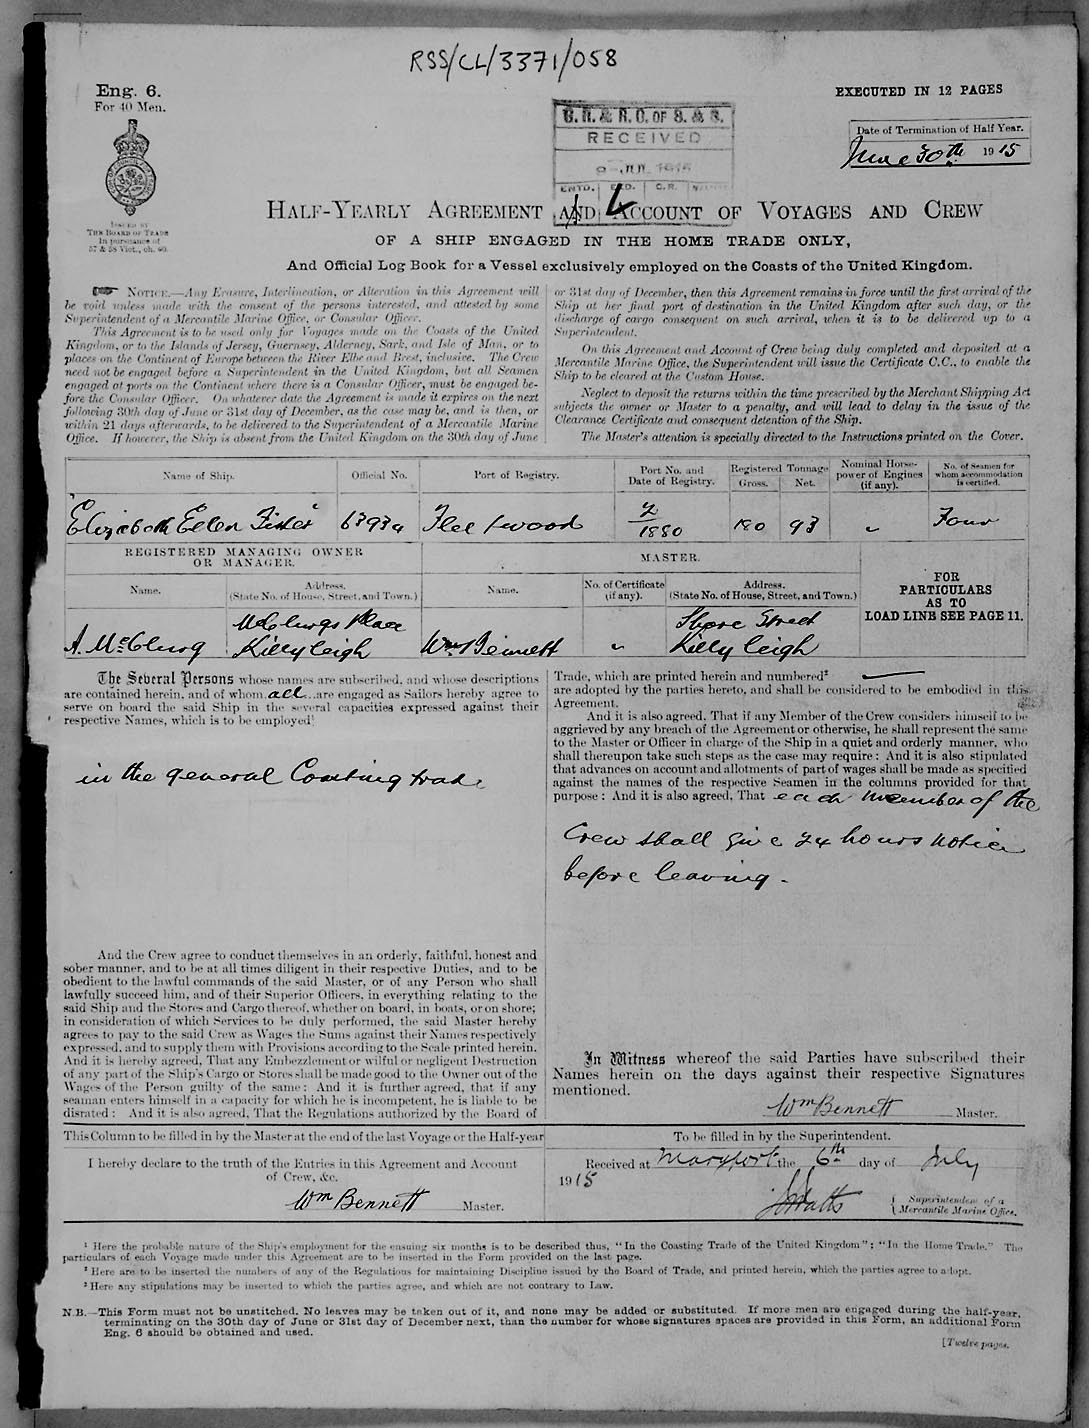 RSS/CL/3371/058
Eng. 6.
For 40 Men.
EXECUTED IN 12 PAGES
G.R. & R.O. OF S. & S.
RECEIVED
JUL 1915
ENTD. C.R.
Date of Termination of Half Year.
June 30th 1915
ISSUED BY
THE BOARD OF TRADE
In pursuance of
57 & 58 Vict., ch. 60.
4
HALF-YEARLY AGREEMENT AND ACCOUNT OF VOYAGES AND CREW
OF A SHIP ENGAGED IN THE HOME TRADE ONLY,
And Official Log Book for a Vessel exclusively employed on the Coasts of the United Kingdom.
NOTICE.—Any Erasure, Interlineation, or Alteration in this Agreement will
be void unless made with the consent of the persons interested, and attested by some
Superintendent of a Mercantile Marine Office, or Consular Officer.
This Agreement is to be used only for Voyages made on the Coasts of the United
Kingdom, or to the Islands of Jersey, Guernsey, Alderney, Sark, and Isle of Man, or to
places on the Continent of Europe between the River Elbe and Brest, inclusive. The Crew
need not be engaged before a Superintendent in the United Kingdom, but all Seamen
engaged at ports on the Continent where there is a Consular Officer, must be engaged be-
fore the Consular Officer. On whatever date the Agreement is made it expires on the next
following 30th day of June or 31st day of December, as the case may be, and is then, or
within 21 days afterwards, to be delivered to the Superintendent of a Mercantile Marine
Office. If however, the Ship is absent from the United Kingdom on the 30th day of June
or 31st day of December, then this Agreement remains in force until the first arrival of the
Ship at her final port of destination in the United Kingdom after such day, or the
discharge of cargo consequent on such arrival, when it is to be delivered up to a
Superintendent.
On this Agreement and Account of Crew being duly completed and deposited at a
Mercantile Marine Office, the Superintendent will issue the Certificate C.C., to enable the
Ship to be cleared at the Custom House.
Neglect to deposit the returns within the time prescribed by the Merchant Shipping Act
subjects the owner or Master to a penalty, and will lead to delay in the issue of the
Clearance Certificate and consequent detention of the Ship.
The Master's attention is specially directed to the Instructions printed on the Cover.
Name of Ship. Official No. Port of Registry. Port No. and Date of Registry. Registered Tonnage Gross. Net. Nominal Horse-power of Engines (if any). No. of Seamen for whom accommodation is certified.
Elizabeth Ellen Fisher 63939 Fleetwood 2/1880 120 93 Four
REGISTERED MANAGING OWNER OR MANAGER. MASTER.
Name. Address. (State No. of House, Street, and Town.) Name. No. of Certificate (if any). Address. (State No. of House, Street, and Town.)
FOR PARTICULARS AS TO LOAD LINE SEE PAGE 11.
A. McClurg McClurgs Place Killyleigh Wm Bennett Shore Street Killyleigh
The Several Persons whose names are subscribed, and whose descriptions
are contained herein, and of whom all are engaged as Sailors hereby agree to
serve on board the said Ship in the several capacities expressed against their
respective Names, which is to be employed¹
in the general Coasting trade
And the Crew agree to conduct themselves in an orderly, faithful, honest and
sober manner, and to be at all times diligent in their respective Duties, and to be
obedient to the lawful commands of the said Master, or of any Person who shall
lawfully succeed him, and of their Superior Officers, in everything relating to the
said Ship and the Stores and Cargo thereof, whether on board, in boats, or on shore;
in consideration of which Services to be duly performed, the said Master hereby
agrees to pay to the said Crew as Wages the Sums against their Names respectively
expressed, and to supply them with Provisions according to the Scale printed herein.
And it is hereby agreed, That any Embezzlement or wilful or negligent Destruction
of any part of the Ship's Cargo or Stores shall be made good to the Owner out of the
Wages of the Person guilty of the same: And it is further agreed, that if any
seaman enters himself in a capacity for which he is incompetent, he is liable to be
disrated: And it is also agreed, That the Regulations authorized by the Board of
Trade, which are printed herein and numbered²
are adopted by the parties hereto, and shall be considered to be embodied in this
Agreement.
And it is also agreed, That if any Member of the Crew considers himself to be
aggrieved by any breach of the Agreement or otherwise, he shall represent the same
to the Master or Officer in charge of the Ship in a quiet and orderly manner, who
shall thereupon take such steps as the case may require: And it is also stipulated
that advances on account and allotments of part of wages shall be made as specified
against the names of the respective Seamen in the columns provided for that
purpose: And it is also agreed, That each member of the
Crew shall give 24 hours notice
before leaving.
In Witness whereof the said Parties have subscribed their
Names herein on the days against their respective Signatures
mentioned.
Wm Bennett Master.
This Column to be filled in by the Master at the end of the last Voyage or the Half-year
I hereby declare to the truth of the Entries in this Agreement and Account
of Crew, &c.
Wm Bennett Master.
To be filled in by the Superintendent.
Received at Maryport the 6th day of July
1915
Superintendent of a
Mercantile Marine Office.
¹ Here the probable nature of the Ship's employment for the ensuing six months is to be described thus, "In the Coasting Trade of the United Kingdom"; "In the Home Trade." The
particulars of each Voyage made under this Agreement are to be inserted in the Form provided on the last page.
² Here are to be inserted the numbers of any of the Regulations for maintaining Discipline issued by the Board of Trade, and printed herein, which the parties agree to adopt.
³ Here any stipulations may be inserted to which the parties agree, and which are not contrary to Law.
N.B.—This Form must not be unstitched. No leaves may be taken out of it, and none may be added or substituted. If more men are engaged during the half-year,
terminating on the 30th day of June or 31st day of December next, than the number for whose signatures spaces are provided in this Form, an additional Form
Eng. 6 should be obtained and used.
[Twelve pages.